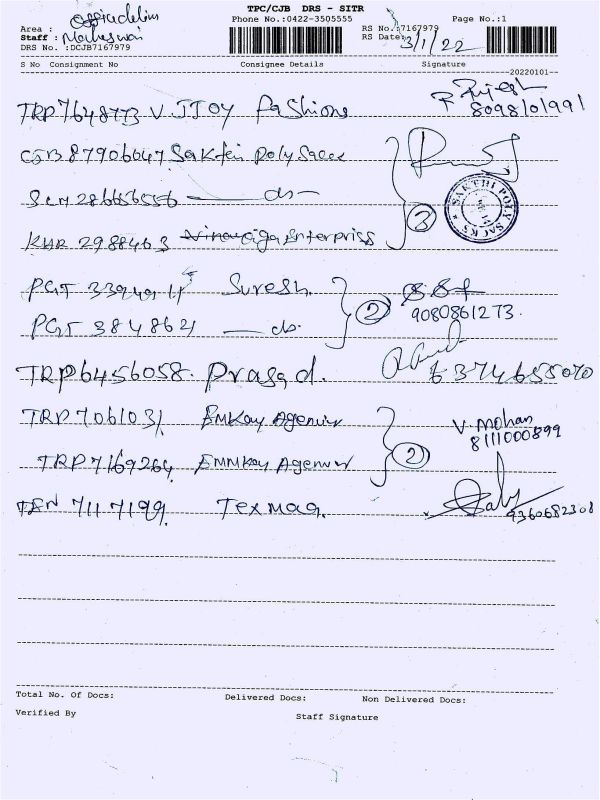 TPC/CJB DRS - SITR
Area : Officedelim
Phone No.:0422-3505555
Page No.:1
Staff : Maheswari
RS No.:7167979
DRS No. :DCJB7167979
RS Date: 3/1/22
S No Consignment No Consignee Details Signature
20220101
TRP7648773 V JJOY fashions R Rajesh
8098101991
CJB87906647 Sakthi Poly Sacks
SCM286656556 do
SAKTHI POLY SACKS
3
KHR 2988463 Vinayaga Enterpriss
PGT 3394914 Suresh.
2
9080861273.
PGT 384862 do.
TRP6456058. Prasad. 6374655070
TRP 706103 EmKay Agencies V. mohan
8111000899
TRP7169264 EmmKay Agencies
2
TEN 7117199. Texmag. 9360682308
Total No. Of Docs: Delivered Docs: Non Delivered Docs:
Verified By
Staff Signature